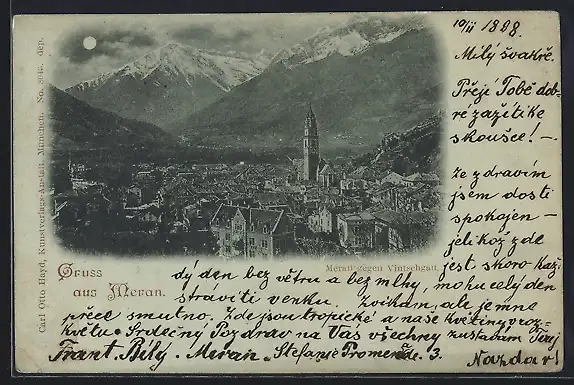 10/11 1898.
Milý švakře.
Přeji Tobě dob-
ré zažitike
skoušce! –
ze zdravím
jsem dosti
spokojen –
jelikož zde
jest skoro kaž-
dý den bez větru a bez mlhy, mohu celý den
stráviti venku.
ale jemne
přece smutno. Zde jsou tropické a naše květiny
květu. Srdečný Pozdrav na Vás všechny zustavam Tvuj
Frant. Bílý. Meran. Stefanie Promenáde. 3.
Nazdar!
Gruss
aus Meran.
Meran gegen Vintschgau.
Carl Otto Hayd, Kunstverlags-Anstalt, München. No. dep.